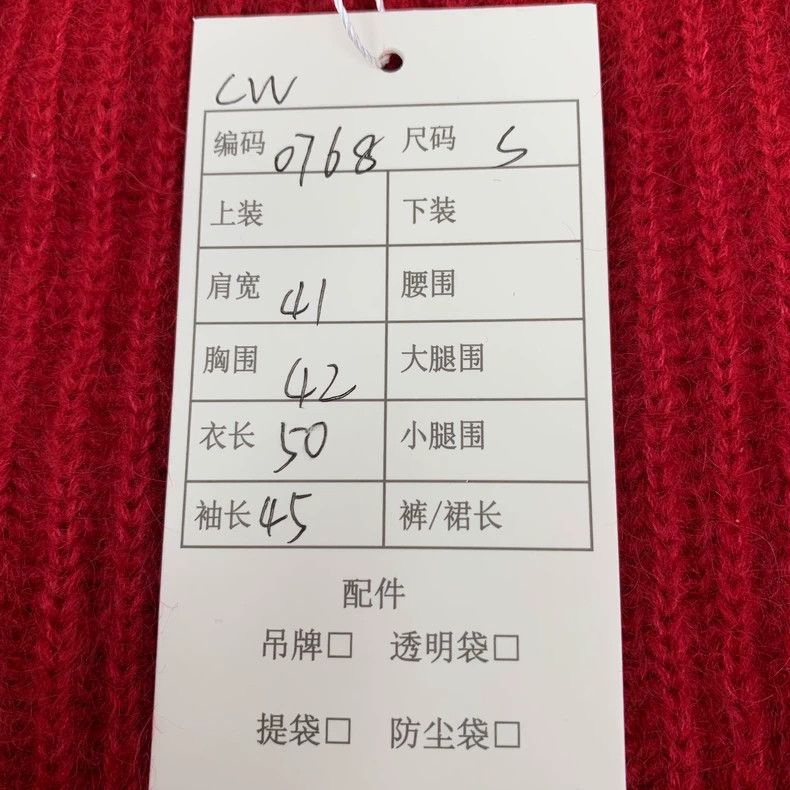 CW
编码 0768 尺码 S
上装 下装
肩宽 41 腰围
胸围 42 大腿围
衣长 50 小腿围
袖长 45 裤/裙长
配件
吊牌□ 透明袋□
提袋□ 防尘袋□